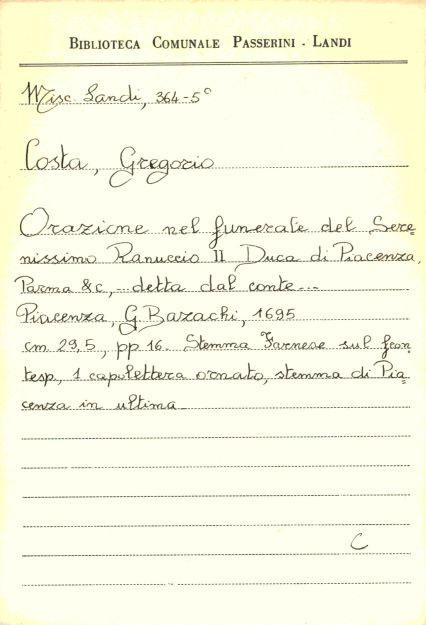 BIBLIOTECA COMUNALE PASSERINI - LANDI
Misc. Landi, 364-5°
Costa, Gregorio
Orazione nel funerale del Sere=
nissimo Ranuccio II Duca di Piacenza,
Parma &c, ... detta dal conte ...
Piacenza, G. Bazachi, 1695
cm 29,5, pp 16. Stemma Farnese sul fron
tesp, 1 capolettera ornato, stemma di Pia=
cenza in ultima
C